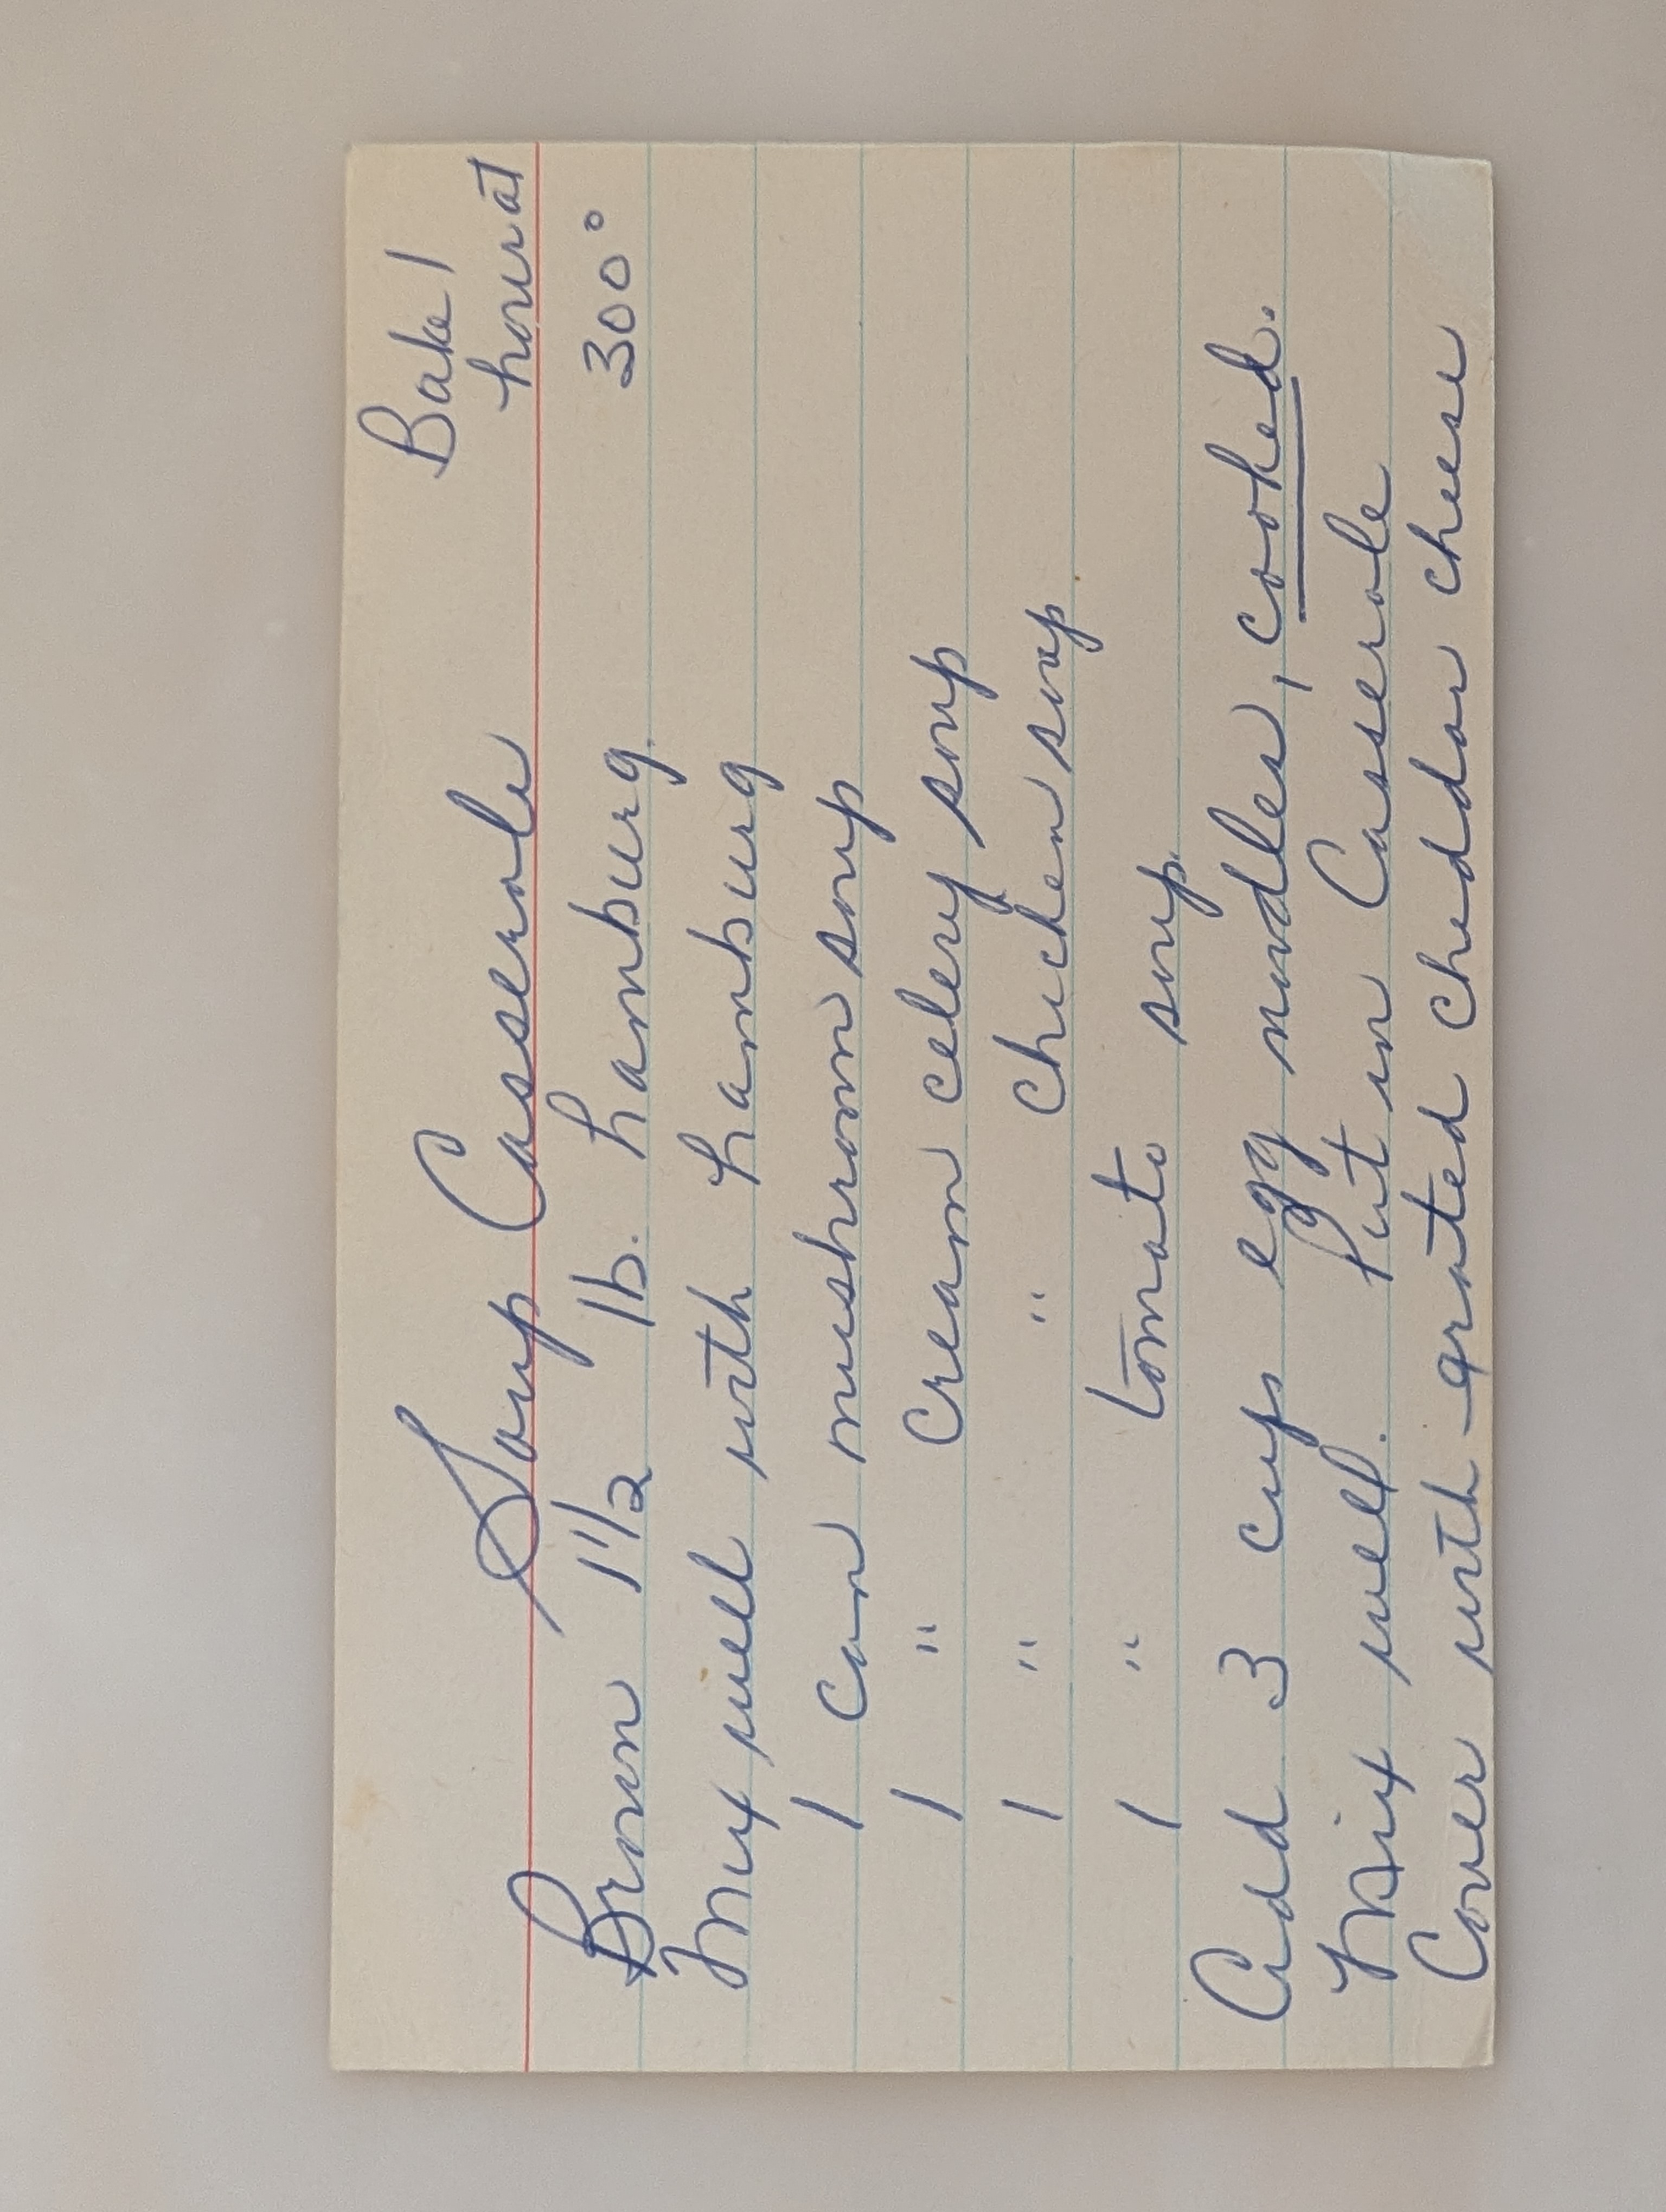 Soup Casserole
Bake 1
hour at
300°
Brown 1 1/2 lb. hamburg.
Mix well with hamburg
1 can mushroom soup
1 " Cream celery soup
1 " " chicken soup
1 " tomato soup.
Add 3 cups egg noodles, cooked.
Mix well. Put in Casserole
Cover with grated cheddar cheese